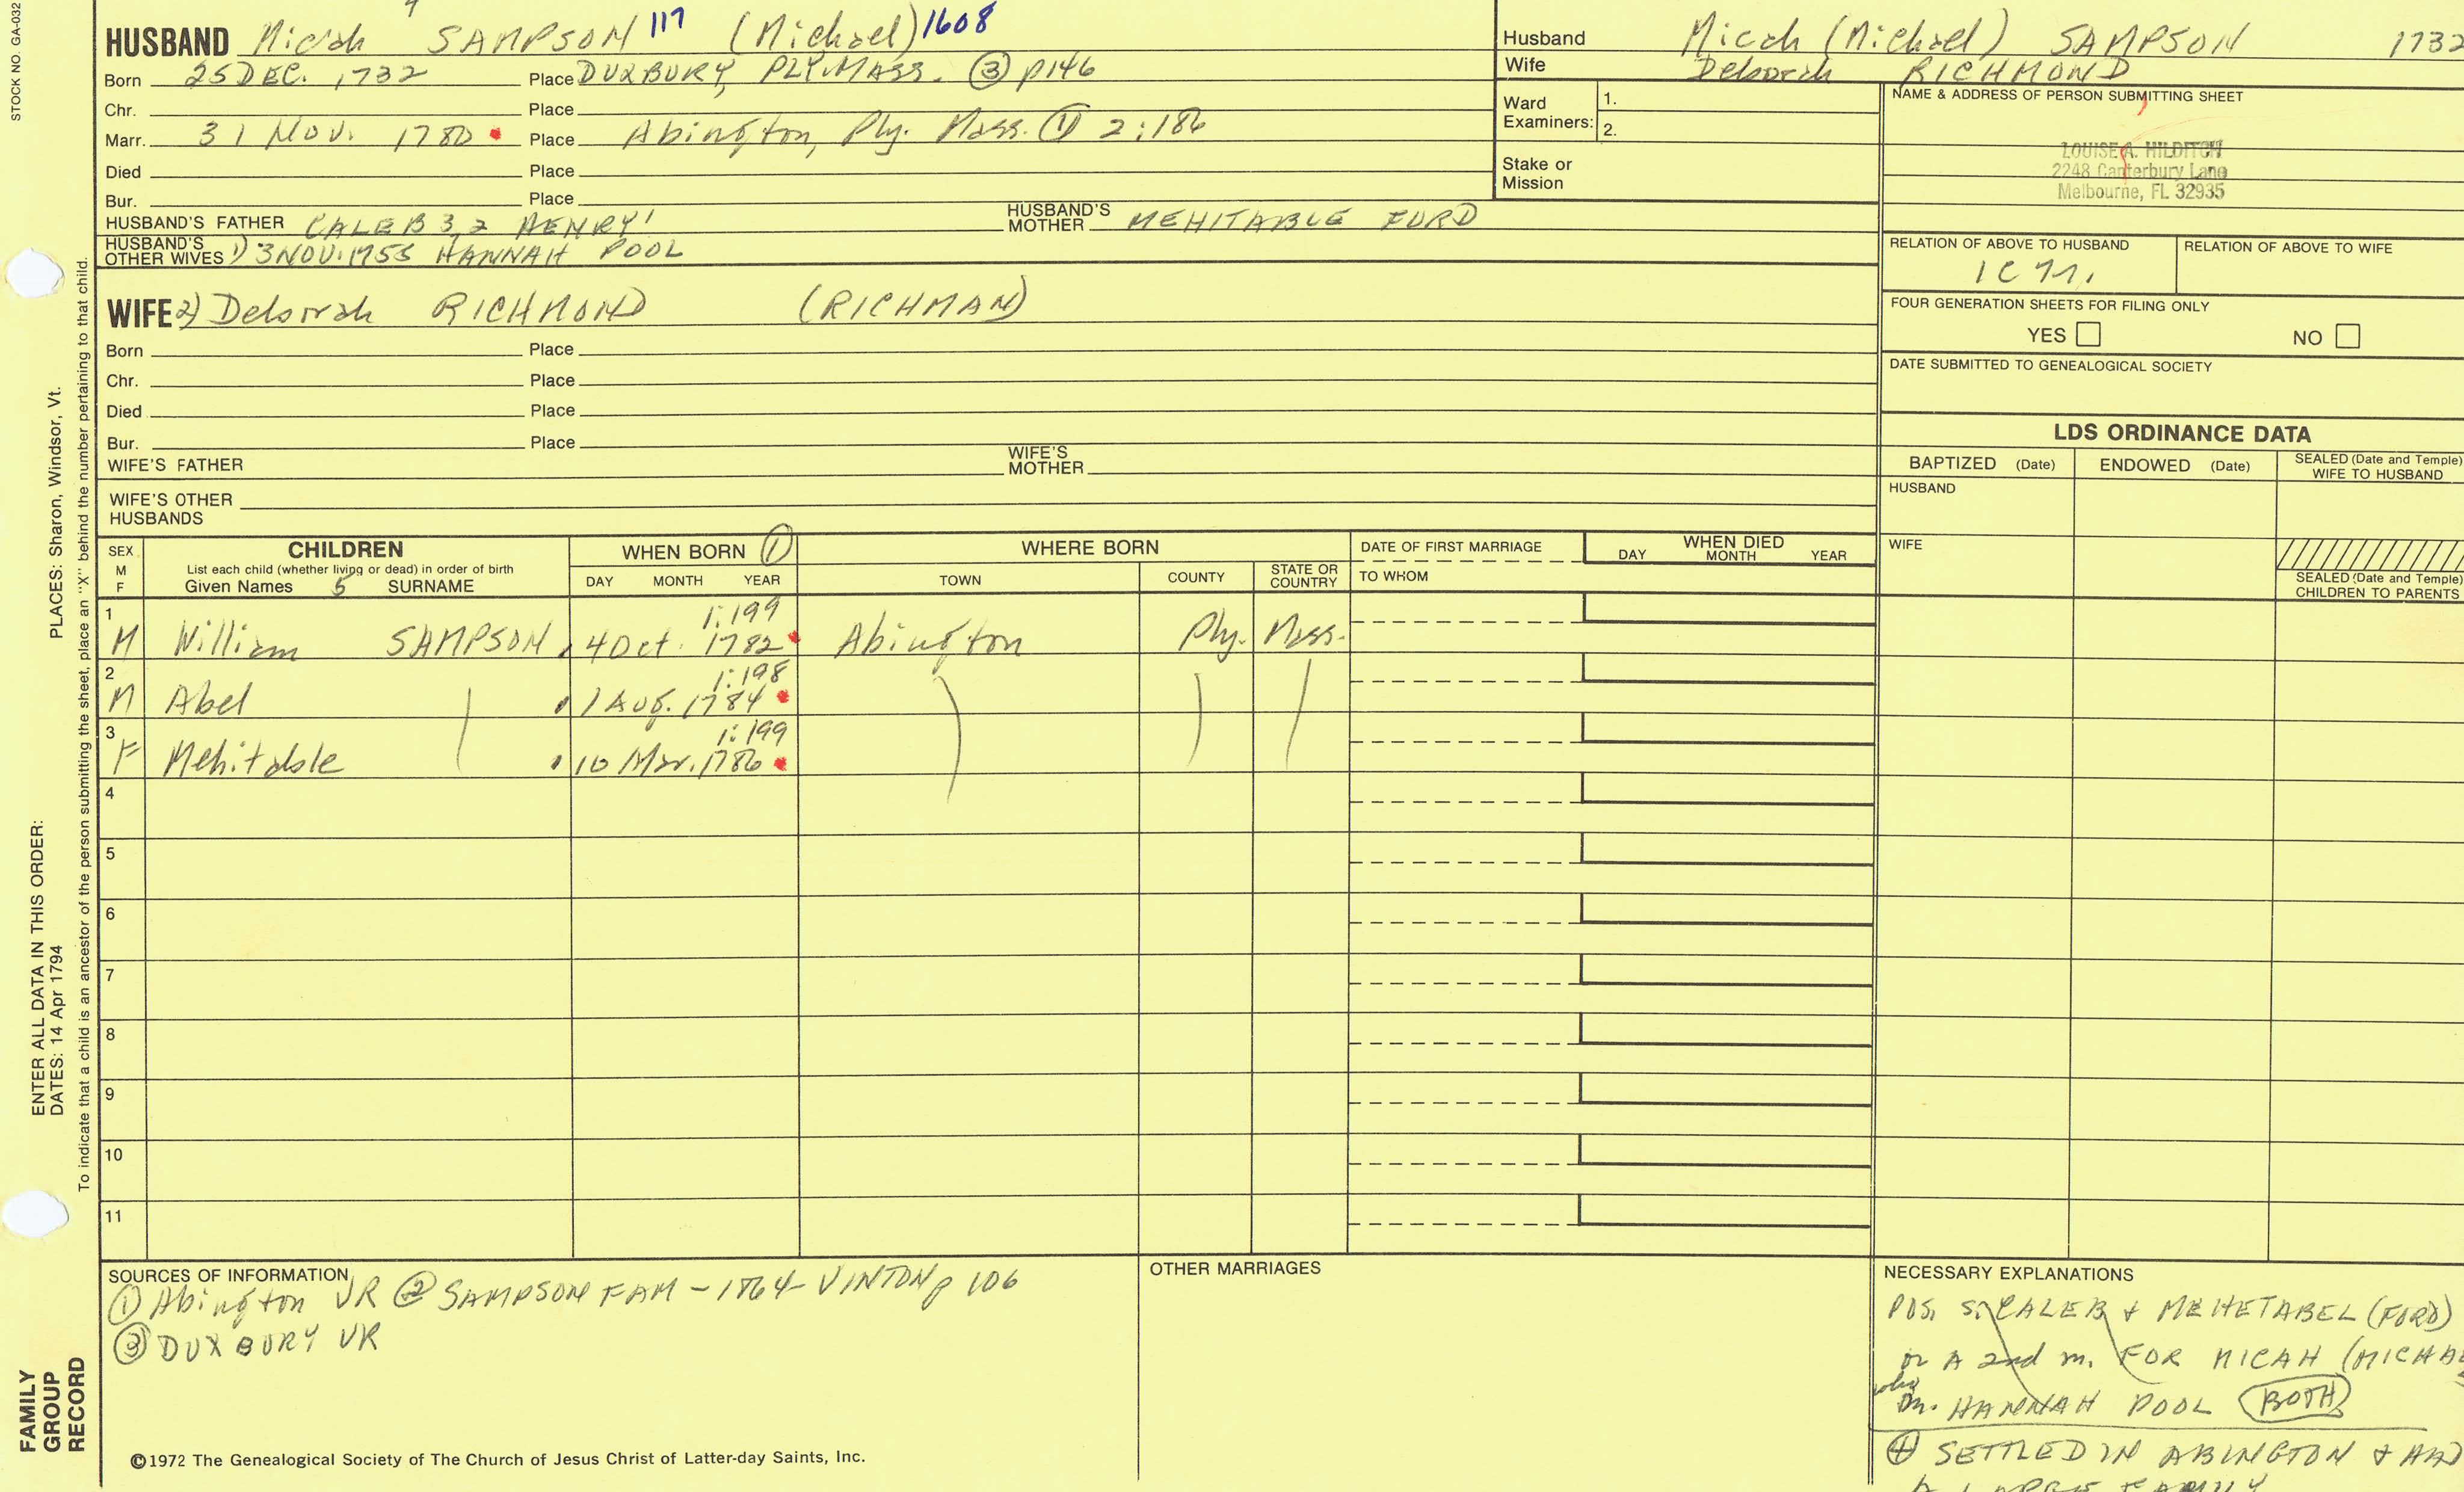 STOCK NO. GA-032
4
HUSBAND Micah SAMPSON 117 (Michael) 1608
Born 25 DEC. 1732 Place DUXBURY, PLY. MASS. ③ p146
Chr. Place
Marr. 31 Nov. 1780 Place Abington, Ply. Mass. ① 2:186
Died Place
Bur. Place
HUSBAND'S FATHER CALEB 3,2 HENRY 1 HUSBAND'S MOTHER MEHITABLE FORD
HUSBAND'S OTHER WIVES 1) 3 NOV. 1755 HANNAH POOL
WIFE 2) Deborah RICHMOND (RICHMAN)
Born Place
Chr. Place
Died Place
Bur. Place
WIFE'S FATHER WIFE'S MOTHER
WIFE'S OTHER HUSBANDS
Husband Micah (Michael) SAMPSON 1732
Wife Deborah RICHMOND
Ward Examiners: 1.
2.
Stake or Mission
NAME & ADDRESS OF PERSON SUBMITTING SHEET
LOUISE A. HILDITCH
2248 Canterbury Lane
Melbourne, FL 32935
RELATION OF ABOVE TO HUSBAND RELATION OF ABOVE TO WIFE
1C
FOUR GENERATION SHEETS FOR FILING ONLY
YES NO
DATE SUBMITTED TO GENEALOGICAL SOCIETY
LDS ORDINANCE DATA
BAPTIZED (Date) ENDOWED (Date) SEALED (Date and Temple) WIFE TO HUSBAND
HUSBAND
WIFE
SEALED (Date and Temple) CHILDREN TO PARENTS
SEX M F CHILDREN WHEN BORN ① WHERE BORN DATE OF FIRST MARRIAGE WHEN DIED
List each child (whether living or dead) in order of birth
Given Names 5 SURNAME DAY MONTH YEAR TOWN COUNTY STATE OR COUNTRY TO WHOM DAY MONTH YEAR
1 1:199
M William SAMPSON 4 Oct. 1782 Abington Ply. Mass.
2 1:198
M Abel 1 Aug. 1784
3 1:199
F Mehitable 10 Mar. 1786
4
5
6
7
8
9
10
11
SOURCES OF INFORMATION
① Abington VR ② SAMPSON FAM - 1864 - VINTON p 106
③ DUXBURY VR
OTHER MARRIAGES
NECESSARY EXPLANATIONS
POS. S. CALEB + MEHETABEL (FORD)
or A 2nd m. FOR MICAH (MICHA
who
m. HANNAH POOL BOTH
④ SETTLED IN ABINGTON + HA
A LARGE FAMILY
©1972 The Genealogical Society of The Church of Jesus Christ of Latter-day Saints, Inc.
PLACES: Sharon, Windsor, Vt.
To indicate that a child is an ancestor of the person submitting the sheet, place an "X" behind the number pertaining to that child.
ENTER ALL DATA IN THIS ORDER:
DATES: 14 Apr 1794
FAMILY
GROUP
RECORD